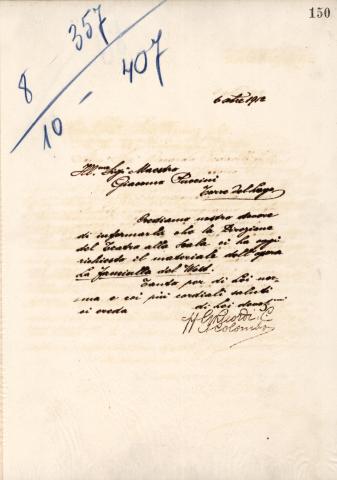 150
8 357
10 - 407
6 8bre 1912
Ill.mo Sigr Maestro
Giacomo Puccini
Torre del Lago
Crediamo nostro dovere
di informarla che la Direzione
del Teatro alla Scala ci ha oggi
richiesto il materiale dell'opera
La Fanciulla del West.
Tanto per di Lei nor-
ma e coi più cordiali saluti
ci creda di Lei devmi
G. Ricordi & C.
Colombo